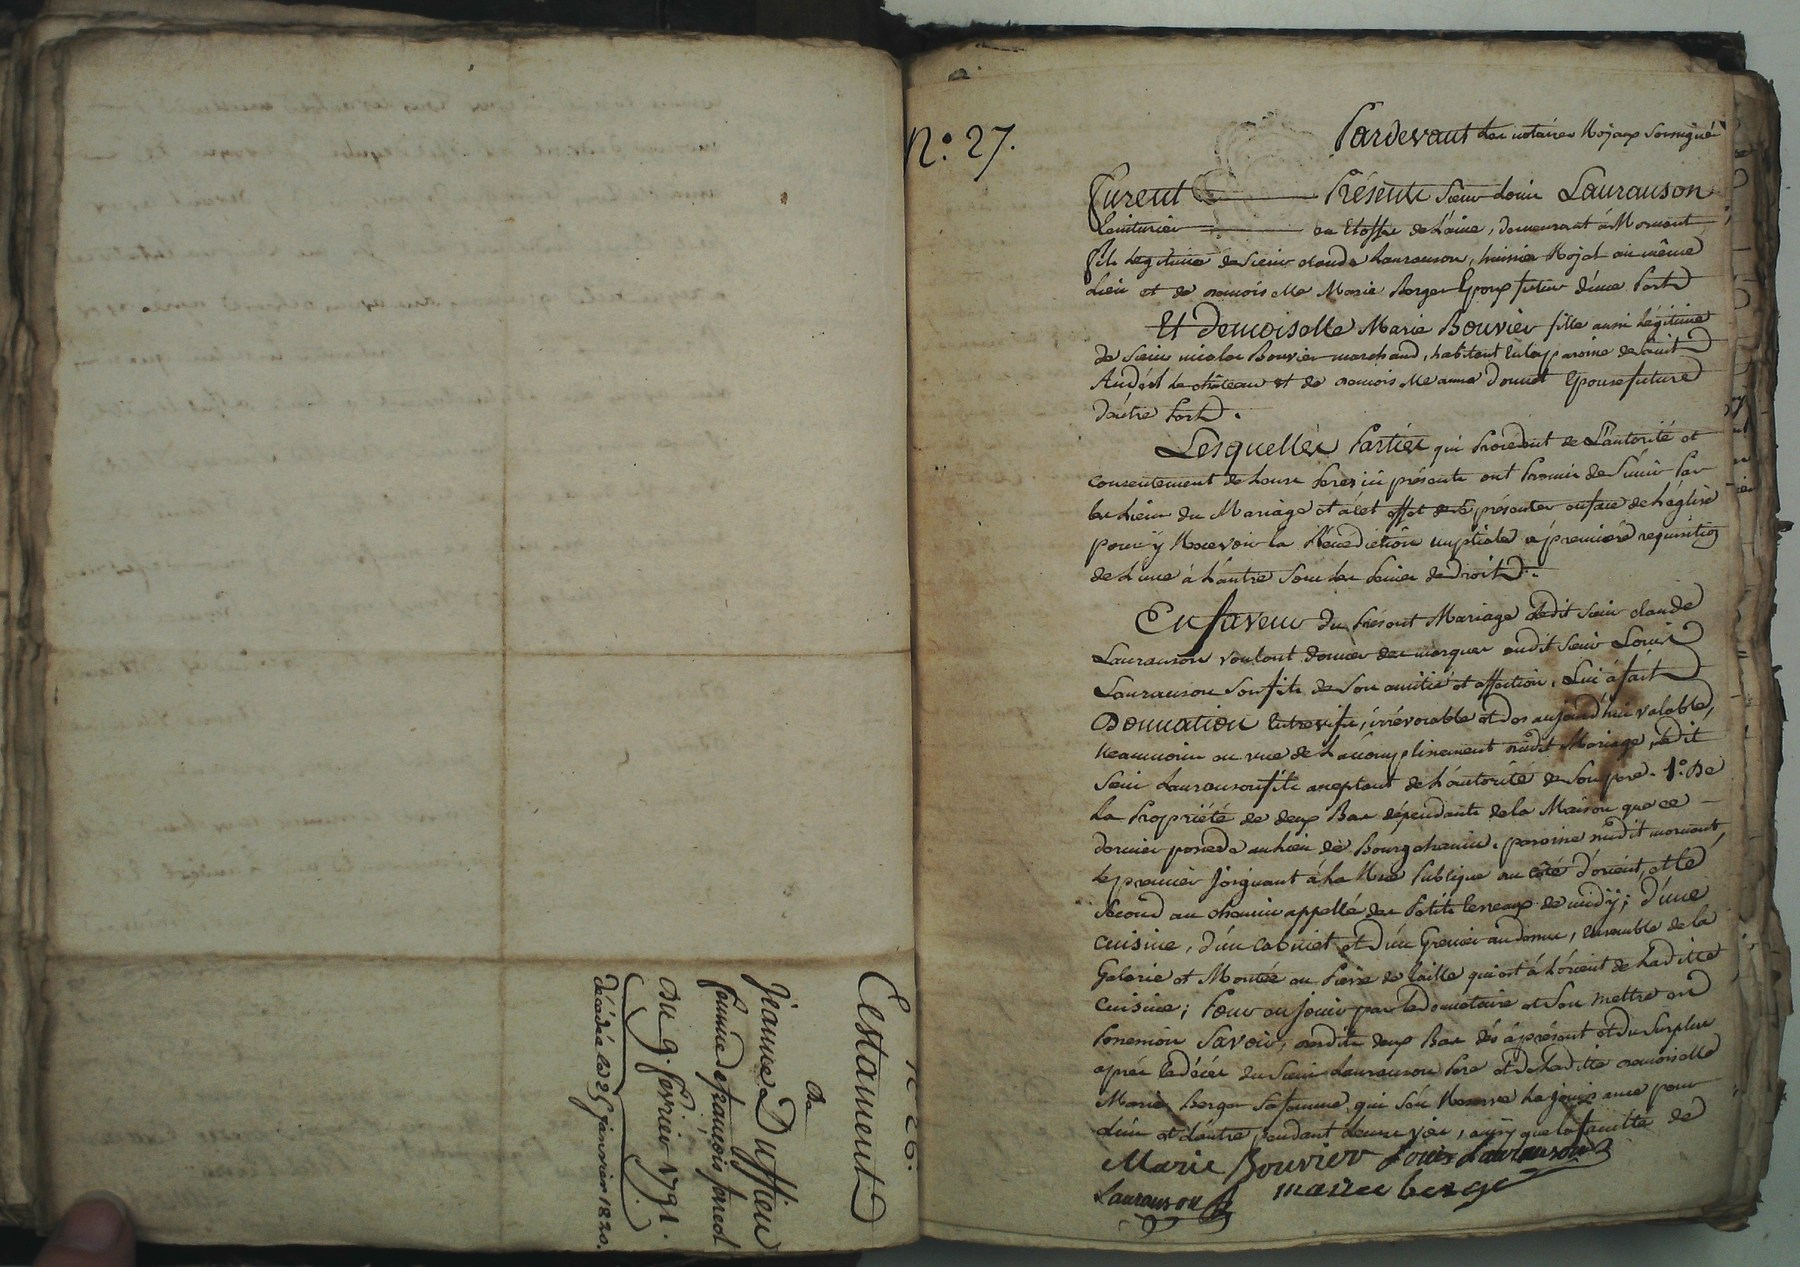 N° 26.
Testament
De
Jeanne Duffieu
femme de françois foret
Du 9. fevrier 1791.
décédée le 25 janvier 1820.
N.° 27.
Pardevant les notaires Royaux soussignés
furent Présents sieur Louis Lauranson
teinturier en étoffes de Laine, demeurant à Mornant
fils légitime de sieur claude Lauranson, huissier Royal au même
Lieu et de demoiselle Marie Berger Epoux futur d'une Part
Et Demoiselle Marie Bouvier fille aussi légitime
de sieur nicolas Bouvier marchand, habitant en la paroisse de saint
Andéol le château et de demoiselle anne Donnet Epouse future
d'autre Part.
Lesquelles Parties qui Procédent de L'autorité et
consentement de Leurs Peres ici présents ont Promis de S'unir Par
les Liens du Mariage et à cet effet de se présenter en face de L'église
pour y Recevoir la Bénédiction nuptiale à première requisition
de L'une à L'autre sous les Peines de Droit.
En faveur du Présent Mariage ledit sieur claude
Lauranson voulant donner des marques audit sieur Louis
Lauranson son fils de son amitié et affection, Lui à fait
Donnation Entrevifs, irrévocable et dès aujourd'hui valable,
neanmoins en vue de L'accomplissement dudit Mariage, ledit
sieur Lauranson fils acceptant de L'autorité de son pere. 1.° De
La Propriété de deux Bas dépendants de la Maison que ce
dernier possede au lieu de Bourgchanin, paroisse dudit mornant,
le premier joignant à La Rue Publique au côté d'orient, et le
second au chemin appellé des Petits terreaux de midy; d'une
cuisine, d'un cabinet et d'un Grenier au dessus, Ensemble de la
Galerie et Montée en Pierre de taille qui est à L'orient de Laditte
cuisine; Pour en jouir par le donnataire et s'en mettre en
Possession Savoir, desdits deux Bas dès à présent et du surplus
après le décès du sieur Lauranson Pere et de Laditte demoiselle
Marie Berger sa femme, qui s'en Reserve La jouissance pour
L'un et L'autre, pendant Leurs vies, ainsy que la faculté de
Marie Bouvier Louis Lauranson
Lauranson marie berge